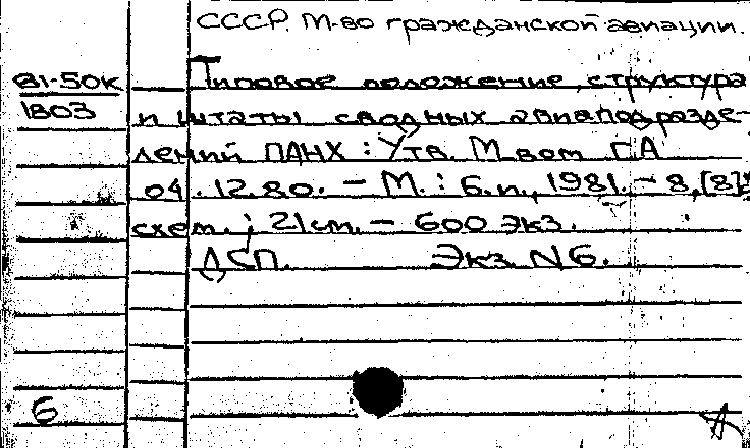 СССР. М-во гражданской авиации.
81-50К
1803
Типовое положение, структура
и штаты сводных авиаподразде-
лений ПАНХ : Утв. М-вом ГА
04.12.80. - М. : Б.и., 1981. - 8, [8]
схем. ; 21 см. - 600 экз.
ДСП. Экз. N 6.
6